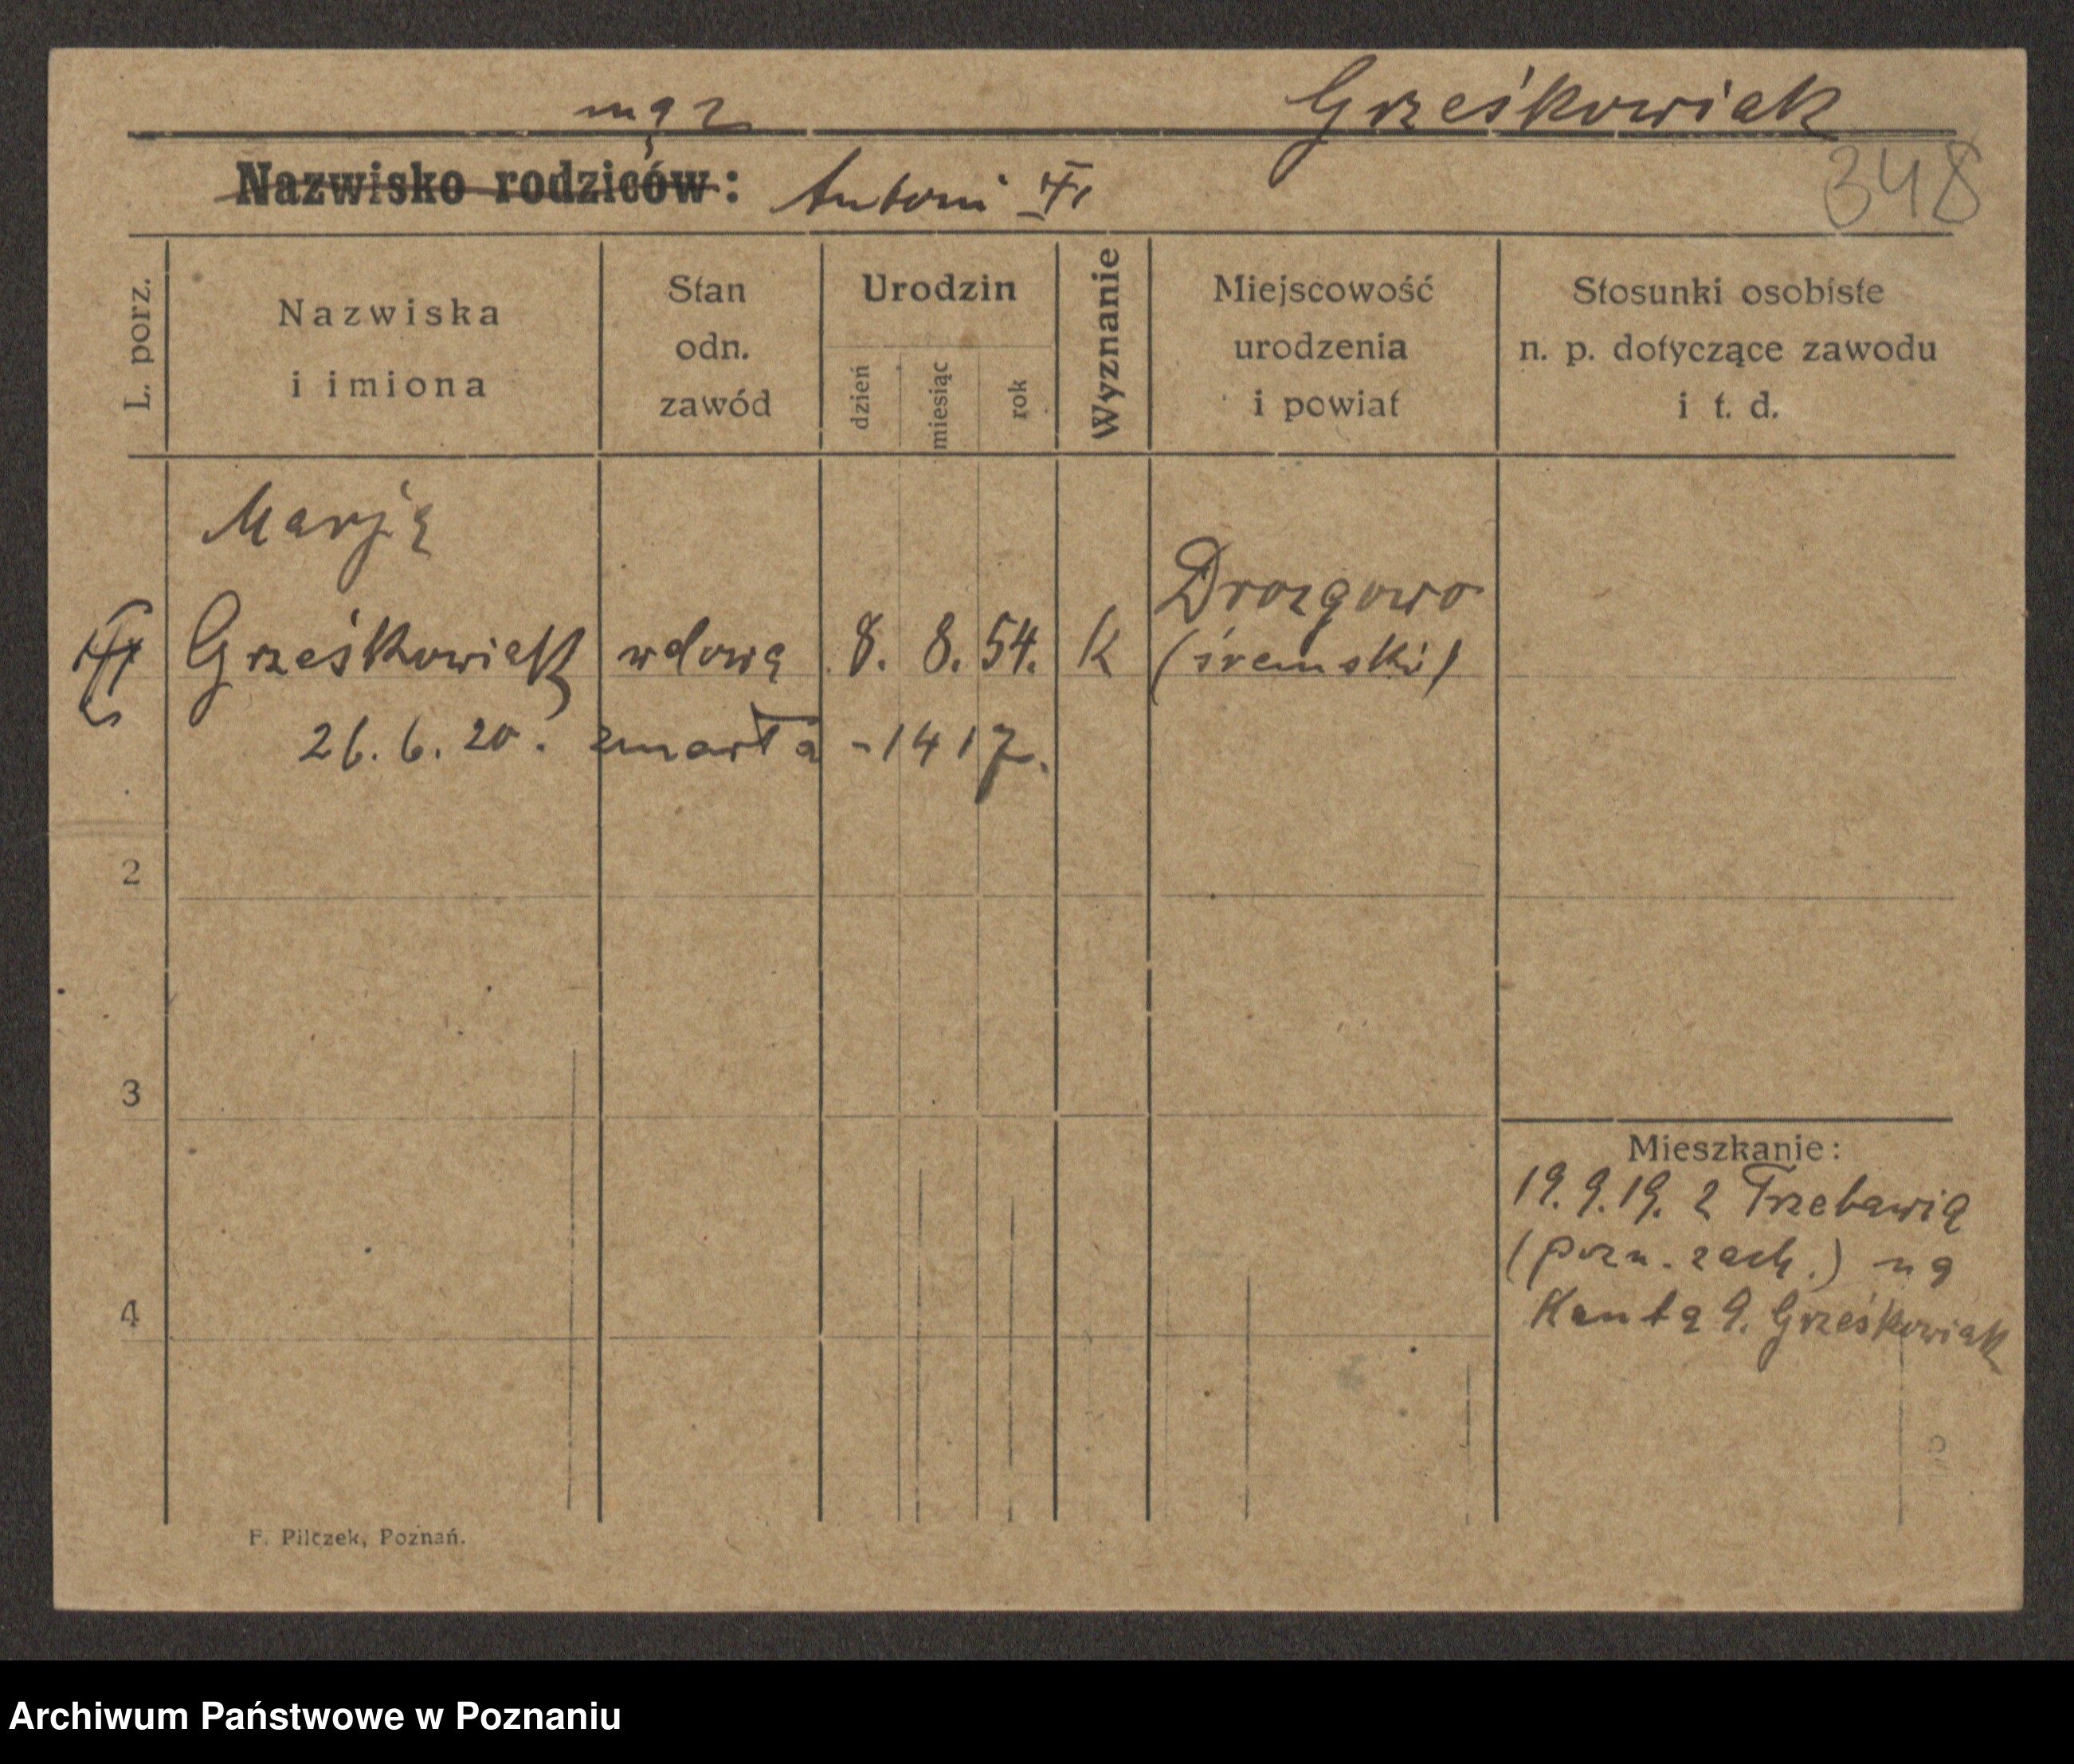 mąż Grześkowiak
Nazwisko rodziców: Antoni
348
L. porz.
Nazwiska
i imiona
Stan
odn.
zawód
Urodzin
dzień
miesiąc
rok
Wyznanie
Miejscowość
urodzenia
i powiat
Stosunki osobiste
n. p. dotyczące zawodu
i t. d.
Marja
Grześkowiak wdowa 8. 8. 54. k Drozgowo
(śremski)
26. 6. 20. zmarła - 1417.
2
3
4
Mieszkanie:
19. 9. 19. z Trzebawia
(pozn. zach.) na
Kanta 9. Grześkowiak
F. Pilczek, Poznań.
Archiwum Państwowe w Poznaniu